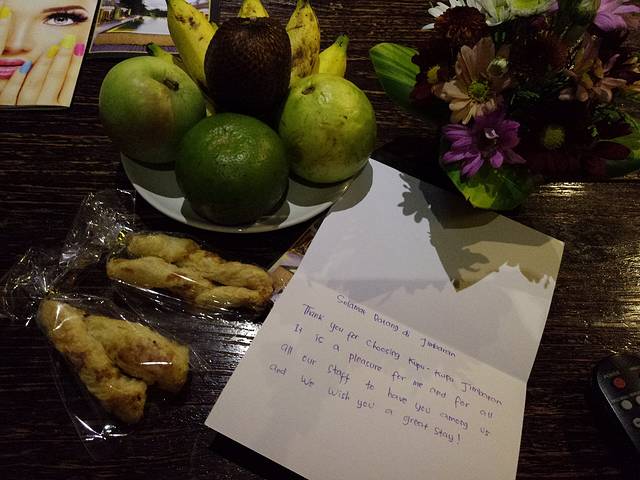 Selamat Datang di Jimbaran
Thank you for choosing Kupu-Kupu Jimbaran
It is a pleasure for me and for all
all our staff to have you among us
and we wish you a great stay!